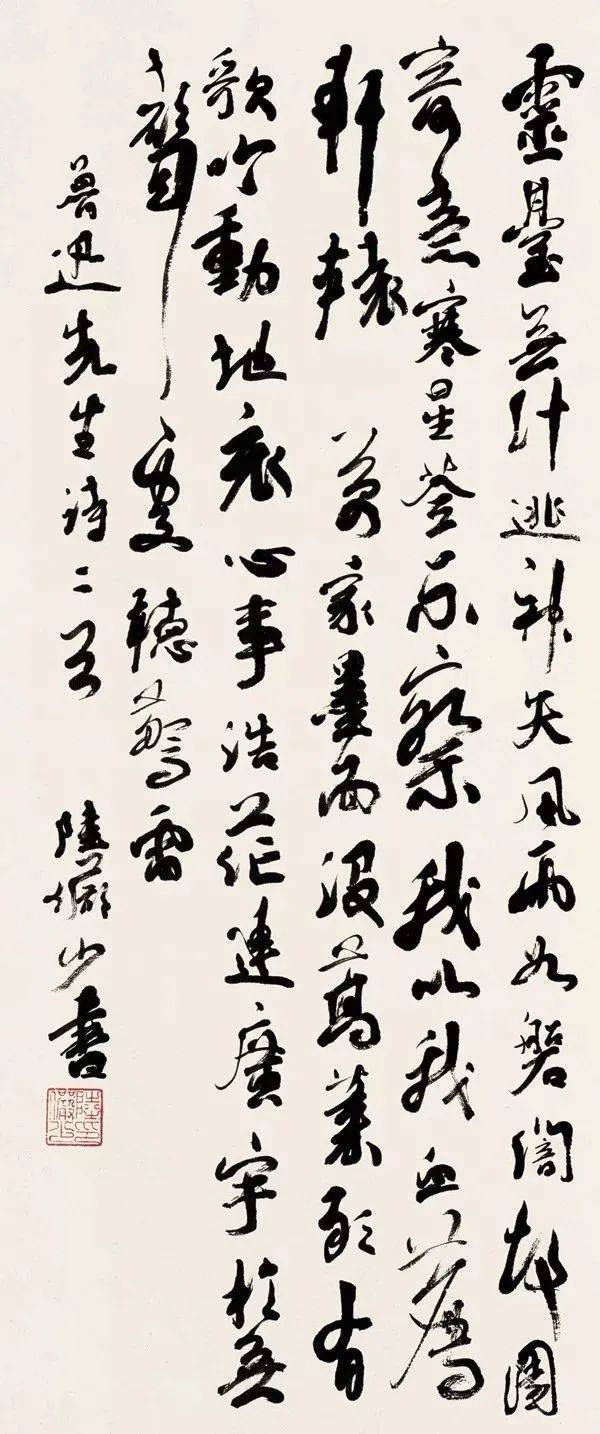 靈臺無計逃神矢風雨如磐闇故園
寄意寒星荃不察我以我血薦
軒轅 萬家墨面沒蒿萊敢有
歌吟動地哀心事浩茫連廣宇於無
聲處聽驚雷
魯迅先生詩二首 陸儼少書